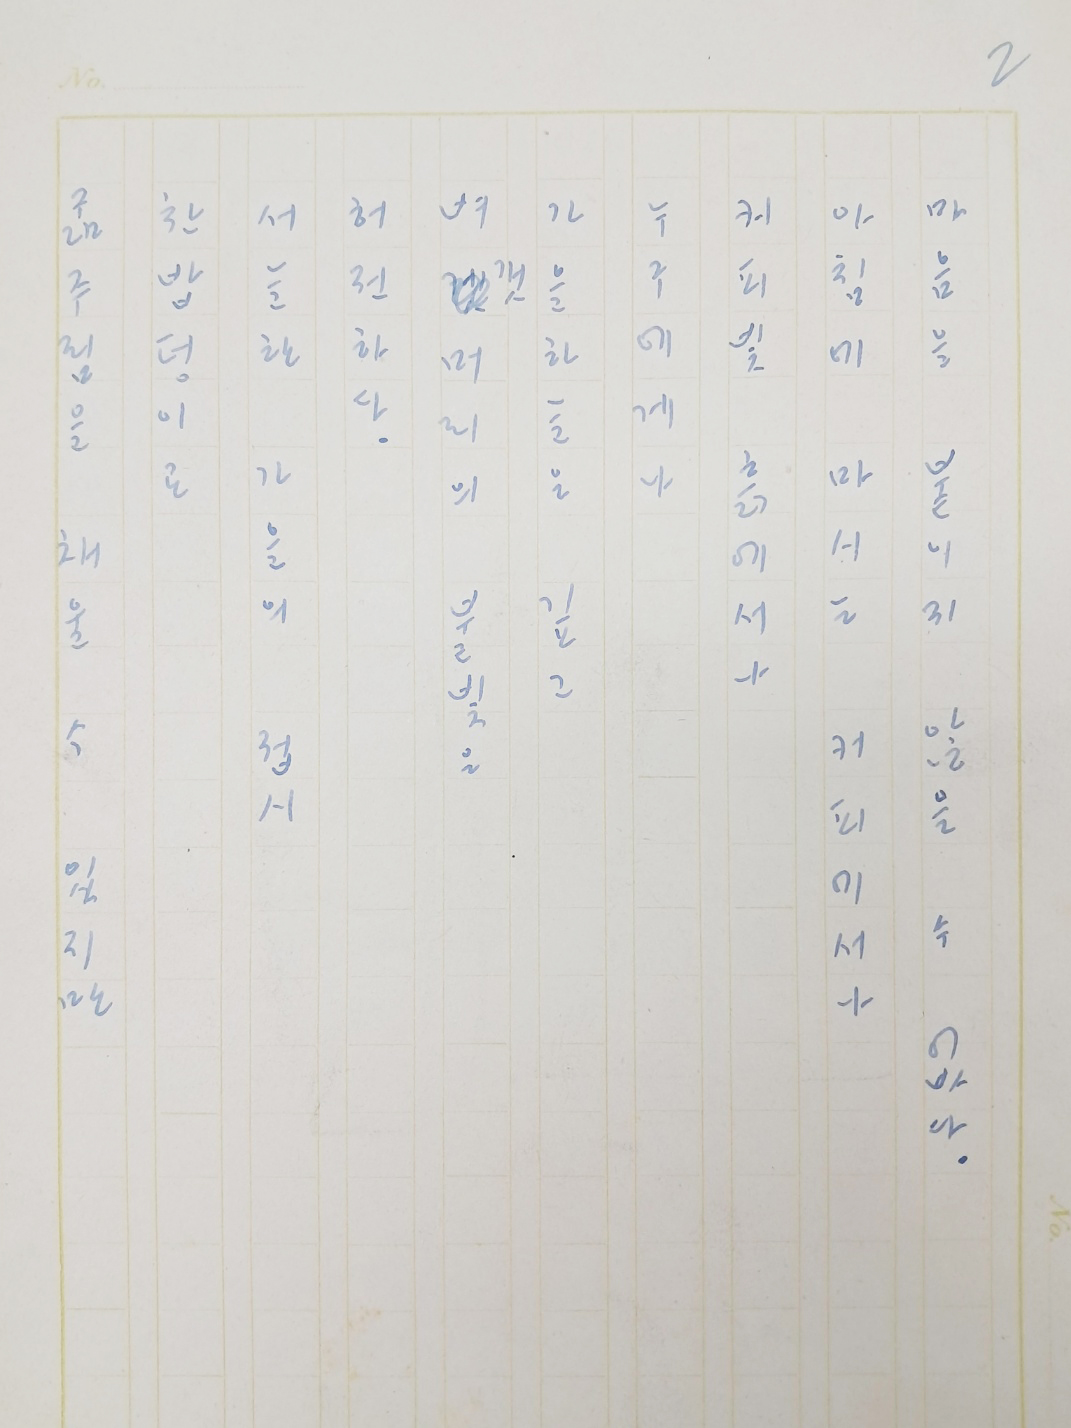 No.
2
마음 않을 수 없다.
아침에 마시는 커피에서나
커피빛 흙에서나
누구에게나
가을하늘은 깊고
벼갯머리의 불빛은
허전하다.
서늘한 가을의
찬밥덩이로
굶주림을 채울 수 있지만
No.